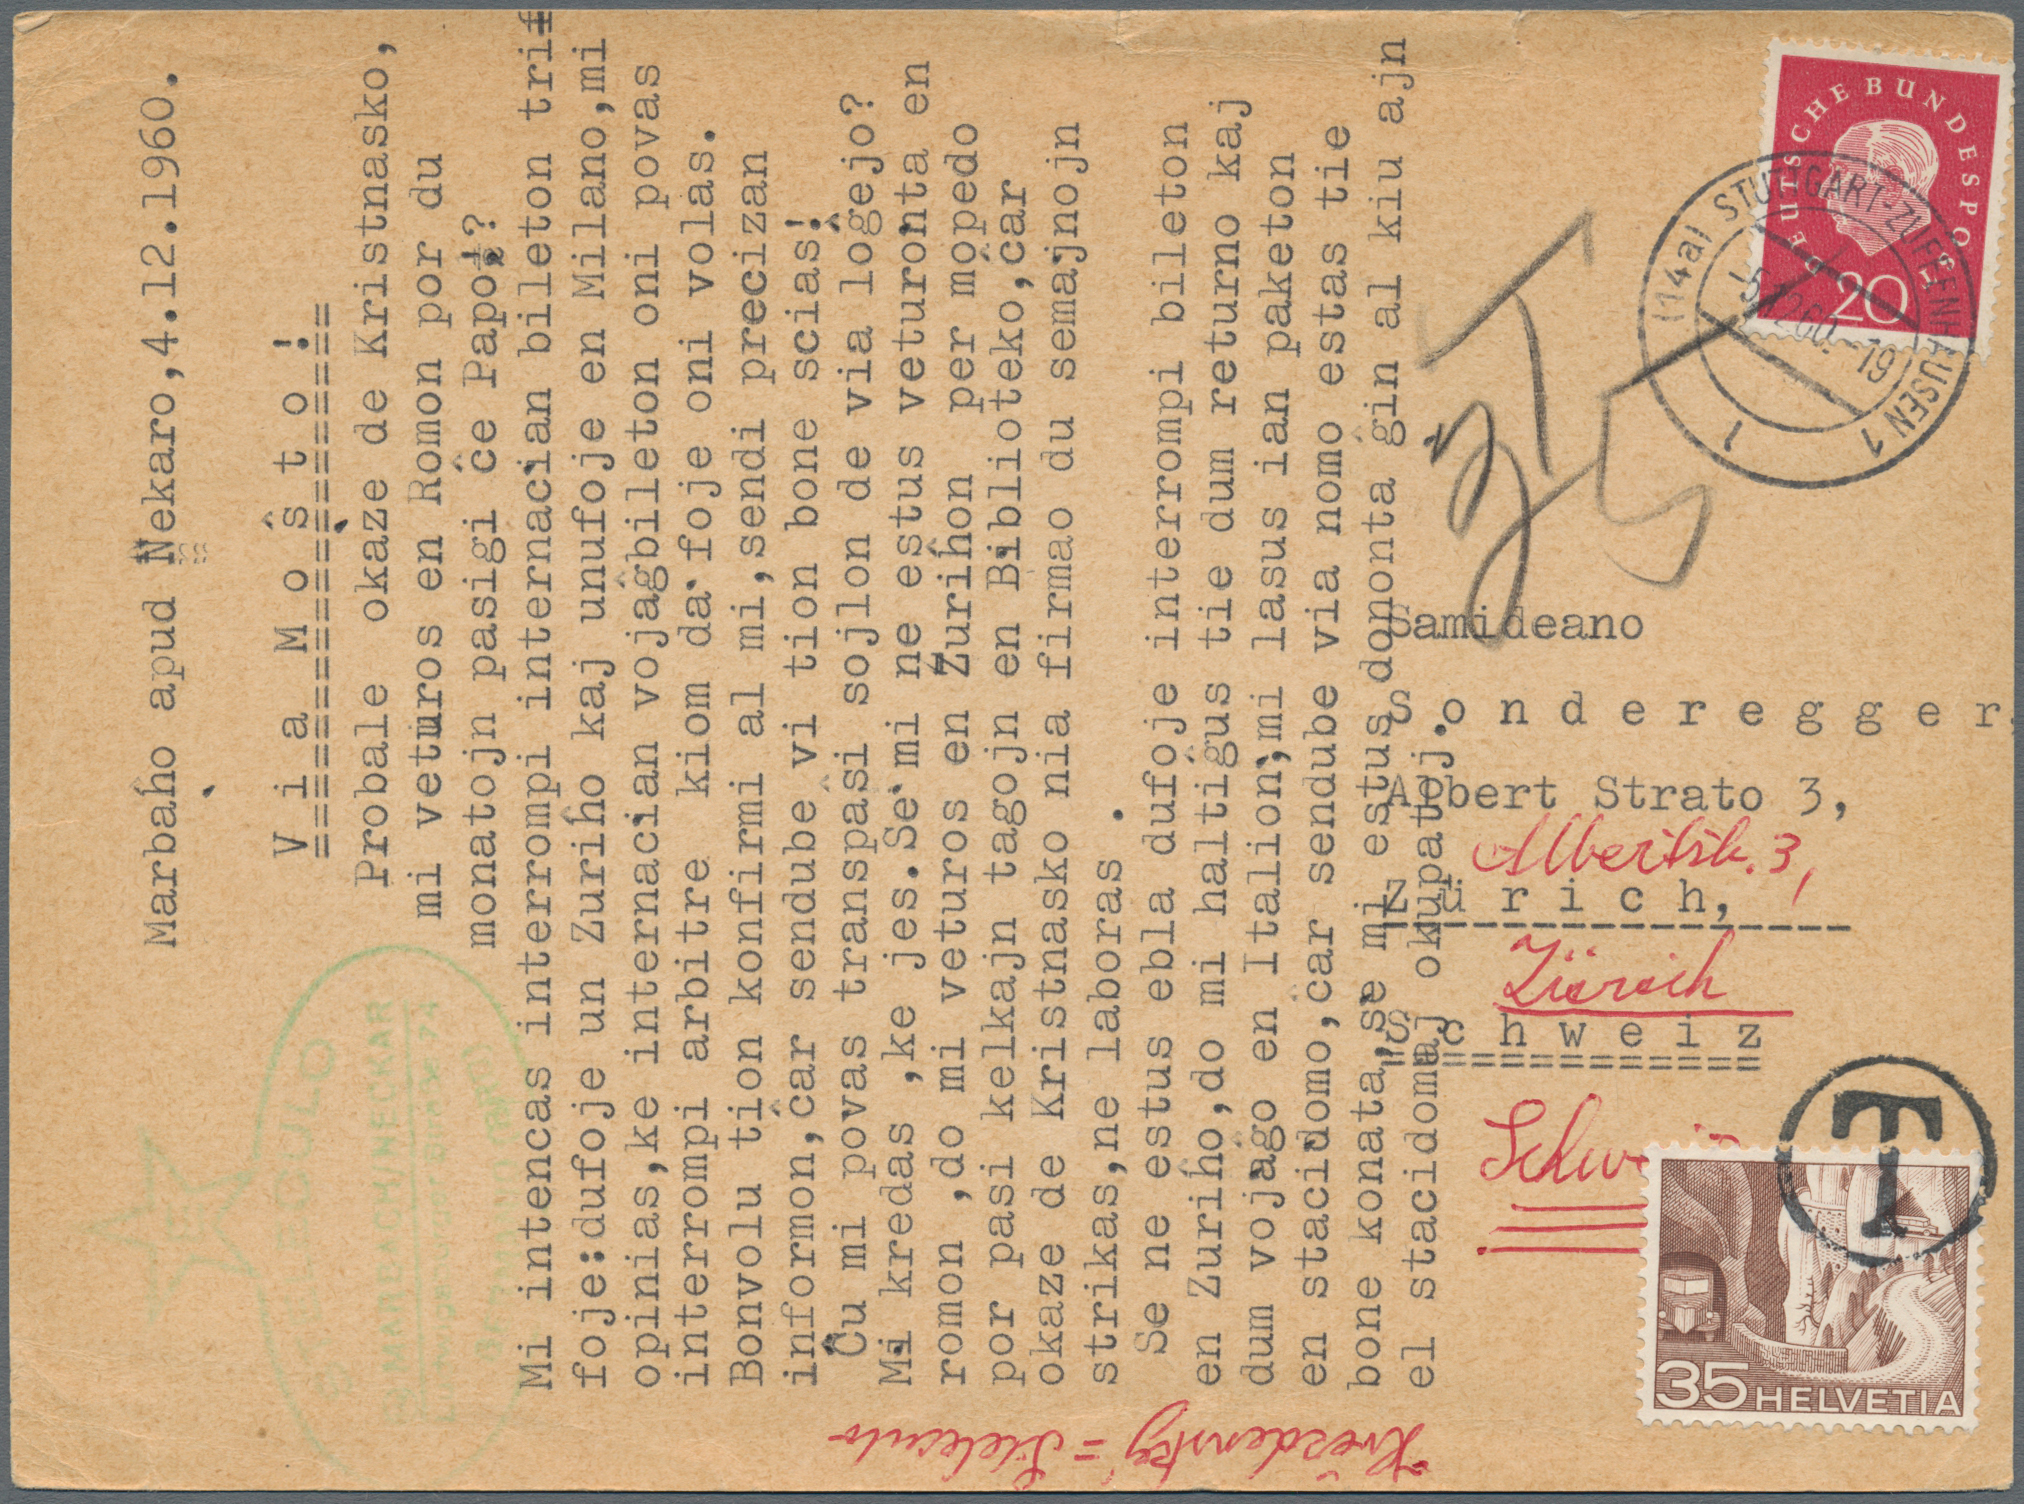 Marbaĥo apud Nekaro,4.12.1960.
V i a M o ŝ t o !
Probale okaze de Kristnasko,
mi veturos en Romon por du
monatojn pasigi ĉe Papo!?
Mi intencas interrompi internacian bileton tri
foje:dufoje un Zuriĥo kaj unufoje en Milano,mi
opinias,ke internacian vojaĝbileton oni povas
interrompi arbitre kiom da foje oni volas.
Bonvolu tion konfirmi al mi,sendi precizan
informon,ĉar sendube vi tion bone scias!
Ĉu mi povas transpasi sojlon de via loĝejo?
Mi kredas ,ke jes.Se mi ne estus veturonta en
romon ,do mi veturos en Zuriĥon per mopedo
por pasi kelkajn tagojn en Biblioteko,ĉar
okaze de Kristnasko nia firmao du semajnojn
strikas,ne laboras .
Se ne estus ebla dufoje interrompi bileton
en Zuriĥo,do mi haltiĝus tie dum returno kaj
dum vojaĝo en Italion;mi lasus ian paketon
en stacidomo,ĉar sendube via nomo estas tie
bone konata,se mi estus dononta ĝin al kiu ajn
el stacidomaj okupatoj.
Samideano
S o n d e r e g g e r
Albert Strato 3,
Albertstr. 3,
Z ü r i c h,
Zürich
S c h w e i z
Schwei
T
DEUTSCHE BUNDESPOST
20
(14a) STUTTGART-ZUFFENHAUSEN 1
-5.12.60.-19
1
T
35 HELVETIA
MARBACH/NECKAR